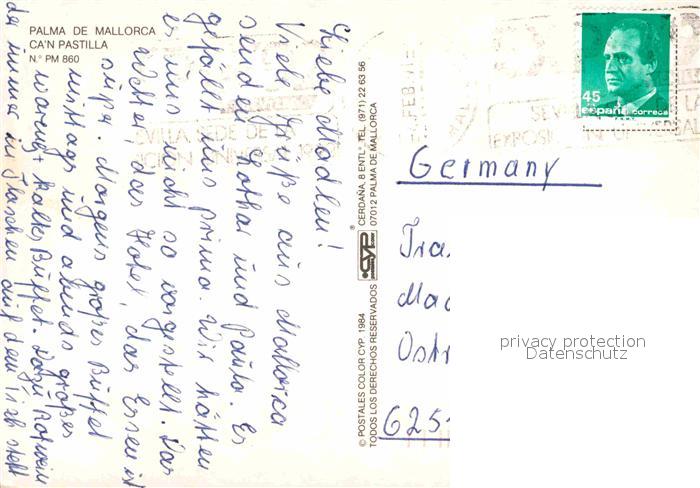 PALMA DE MALLORCA
CA'N PASTILLA
N.º PM 860
Liebe Madlen!
Viele Grüße aus Mallorca
senden Lothar und Paula. Es
gefällt uns prima. Wir hätten
es uns nicht so vorgestellt. Das
Wetter, das Hotel, das Essen ist
supa. Morgens großes Büffet
mittags und abends großes
warmes + kaltes Büffet. Dazu Rotwein
der immer in Flaschen auf dem Tisch steht
© POSTALES COLOR CYP, 1984
TODOS LOS DERECHOS RESERVADOS
CYP
®
CERDAÑA, 8 ENTL.º TEL. (971) 22 63 56
07012 PALMA DE MALLORCA
SEVILLA, SEDE DE LA
45
España correos
FEB
SEVI
EXPOSI
UNIVERSAL
Germany
Fra
Mad
Ostr
625
privacy protection
Datenschutz